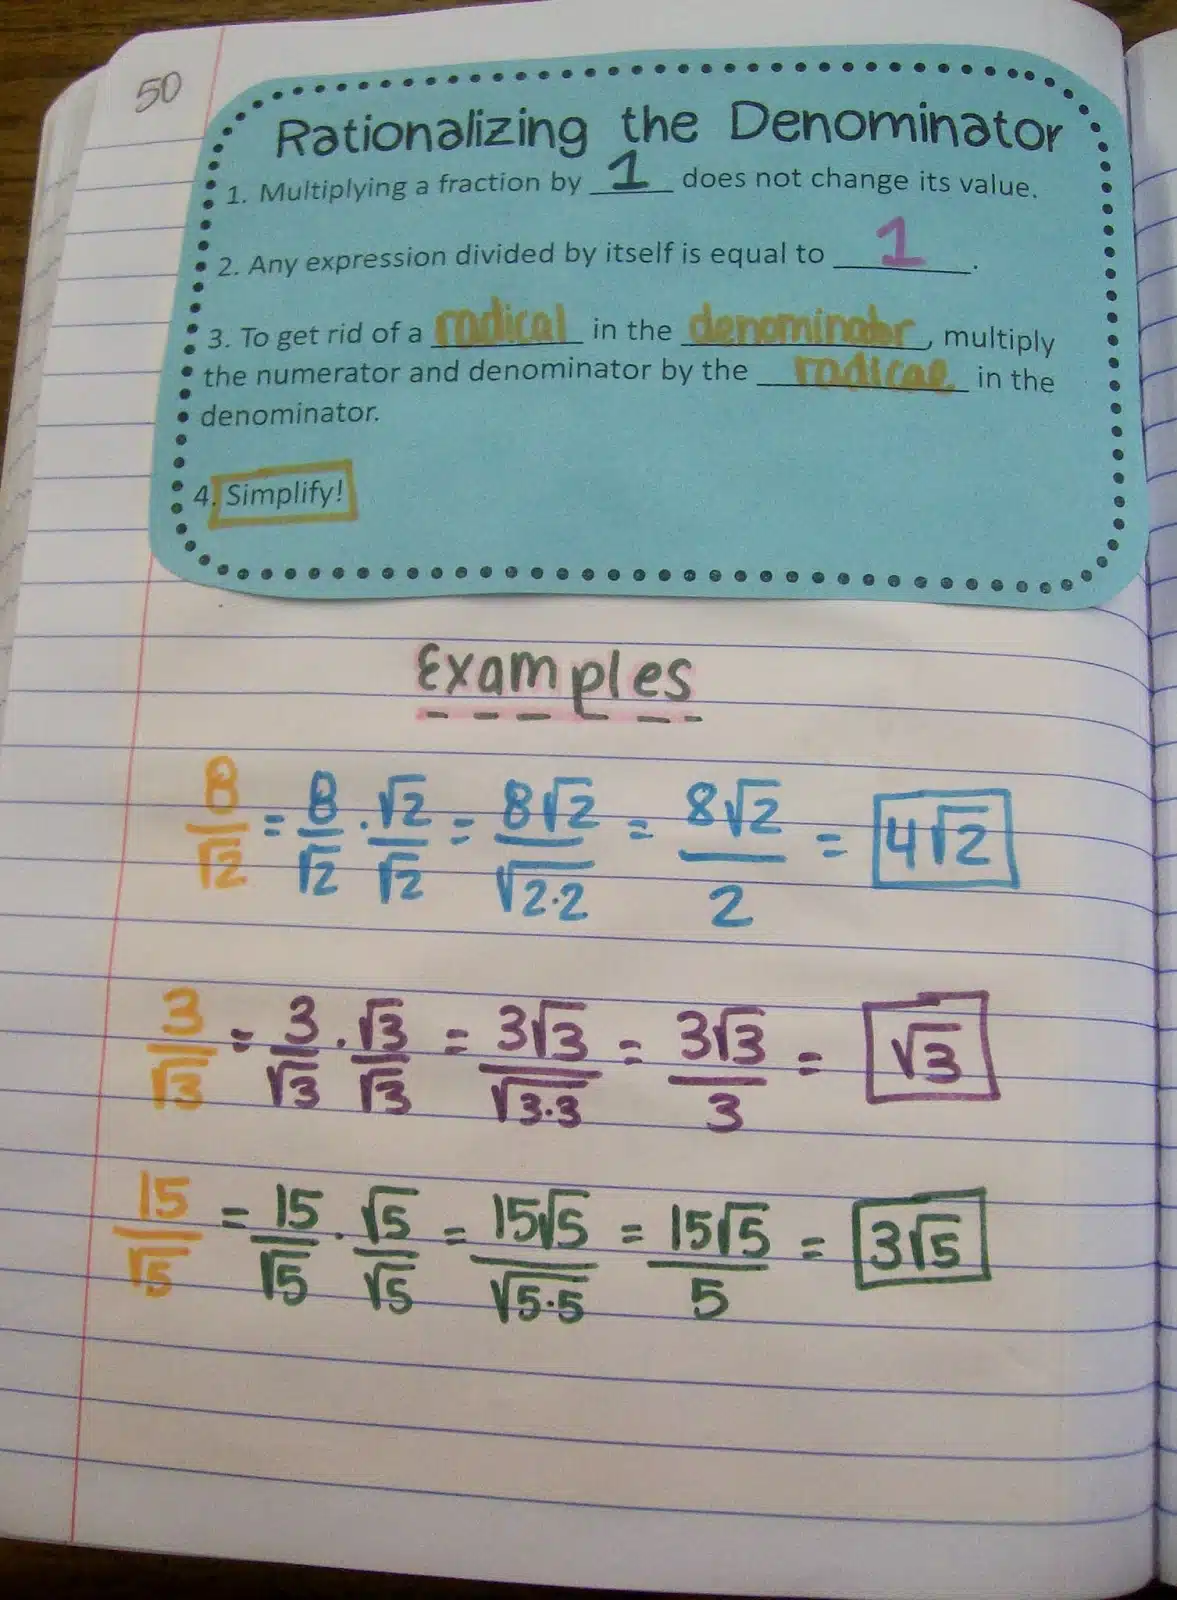 50
Rationalizing the Denominator
1. Multiplying a fraction by 1 does not change its value.
2. Any expression divided by itself is equal to 1.
3. To get rid of a radical in the denominator, multiply
the numerator and denominator by the radical in the
denominator.
4. Simplify!
Examples
8/√2 = 8/√2 · √2/√2 = 8√2/√2·2 = 8√2/2 = 4√2
3/√3 = 3/√3 · √3/√3 = 3√3/√3·3 = 3√3/3 = √3
15/√5 = 15/√5 · √5/√5 = 15√5/√5·5 = 15√5/5 = 3√5